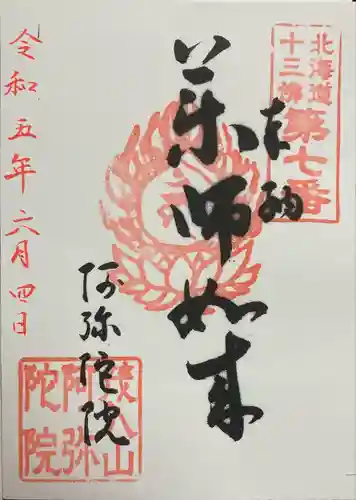 北海道
十三佛
第七番
奉納
薬師如来
阿弥陀院
阿弥
陀院
令和五年六月四日